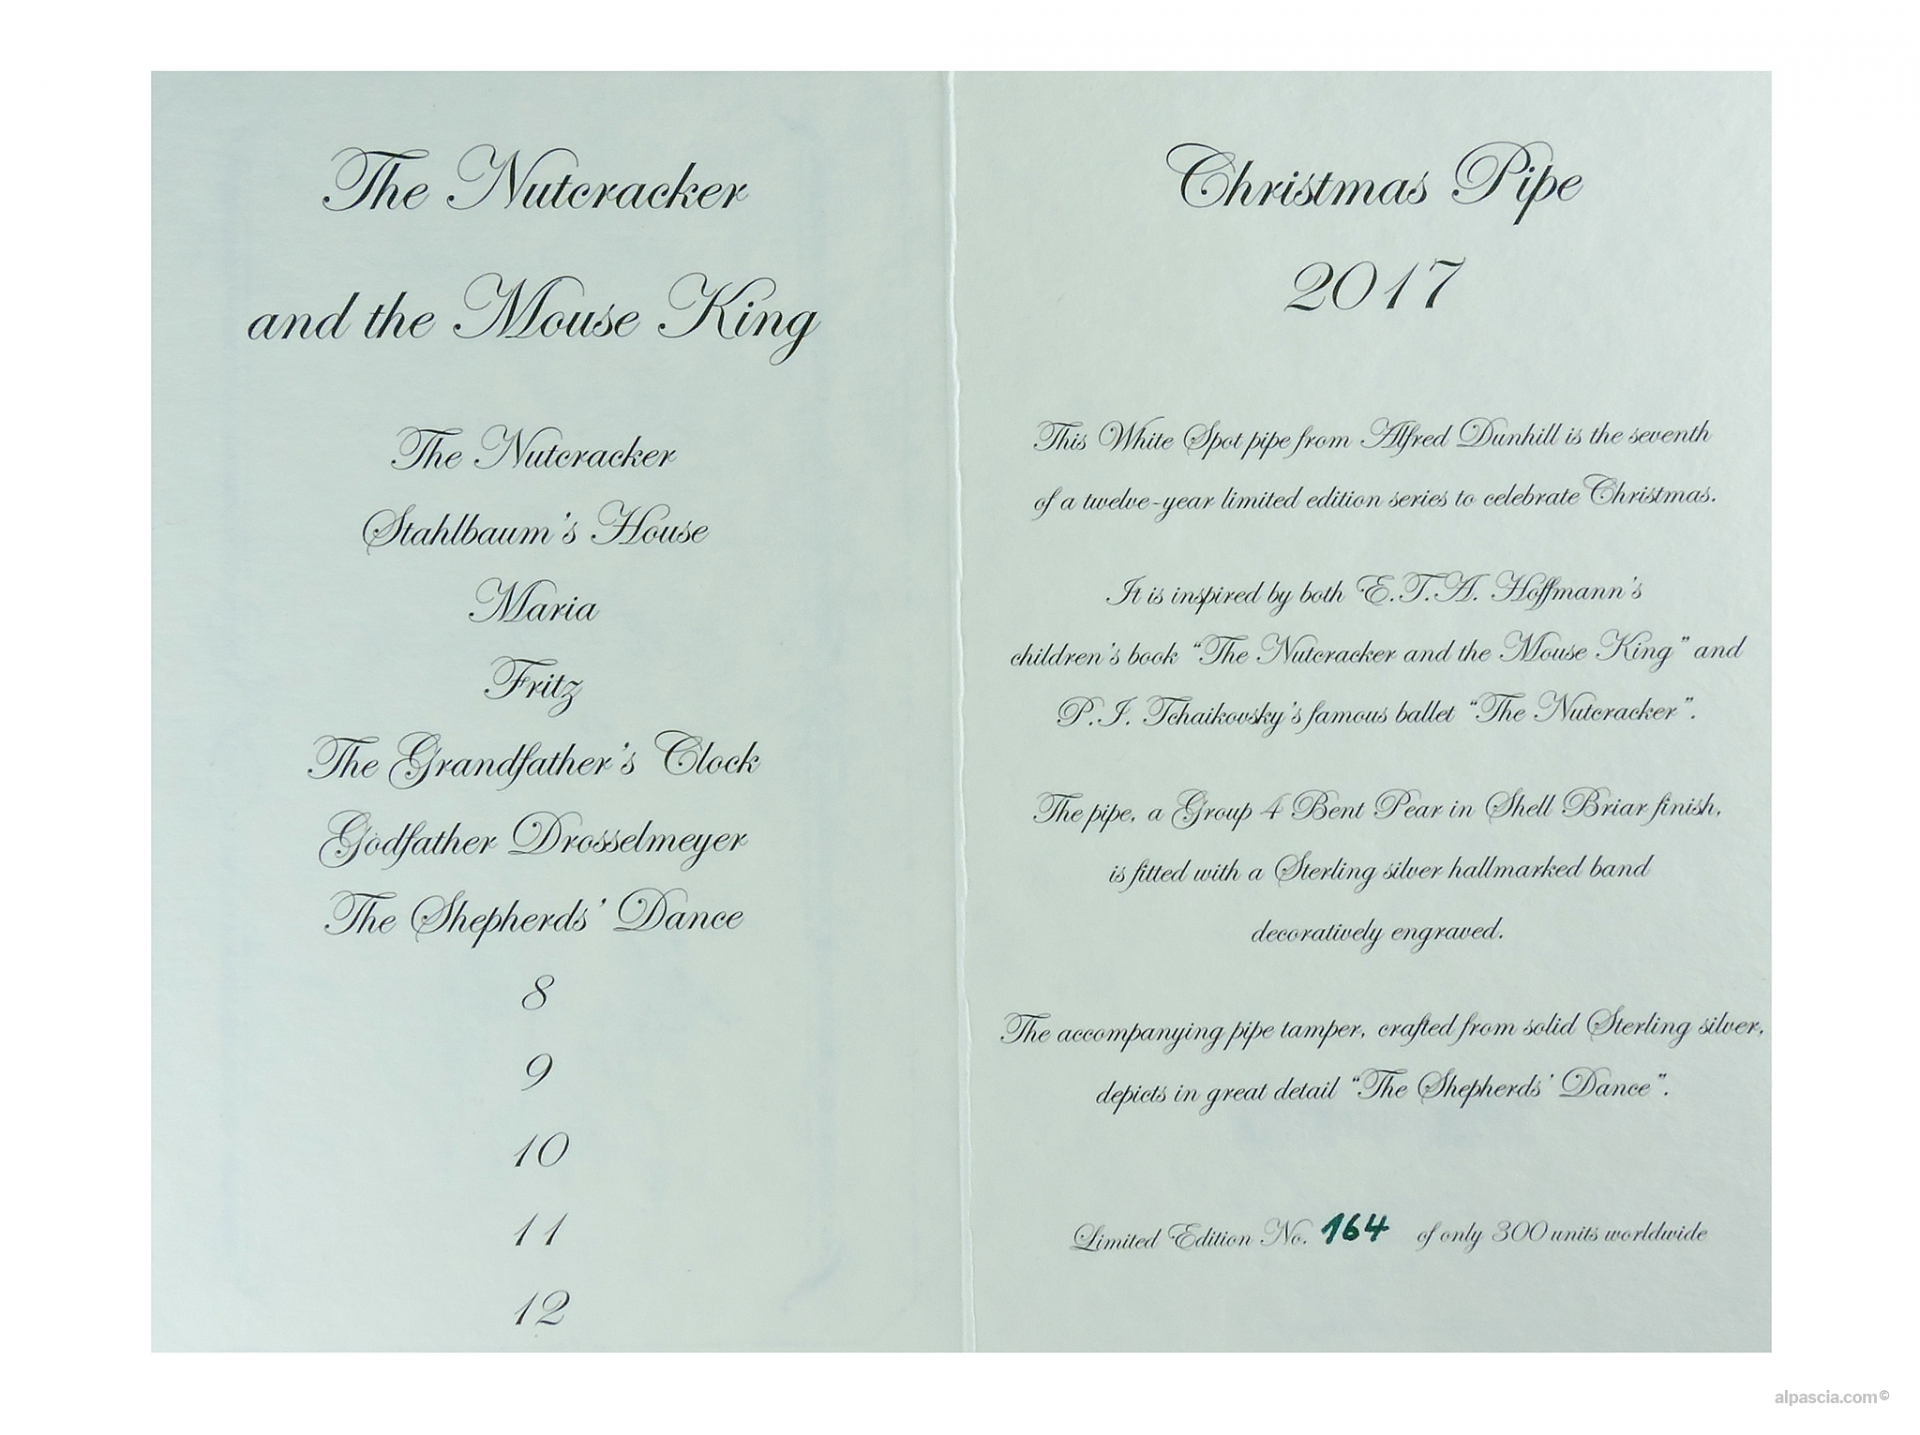 The Nutcracker
and the Mouse King
The Nutcracker
Stahlbaum's House
Maria
Fritz
The Grandfather's Clock
Godfather Drosselmeyer
The Shepherds' Dance
8
9
10
11
12
Christmas Pipe
2017
This White Spot pipe from Alfred Dunhill is the seventh
of a twelve-year limited edition series to celebrate Christmas.
It is inspired by both E.T.A. Hoffmann's
children's book "The Nutcracker and the Mouse King" and
P.I. Tchaikovsky's famous ballet "The Nutcracker".
The pipe, a Group 4 Bent Pear in Shell Briar finish,
is fitted with a Sterling silver hallmarked band
decoratively engraved.
The accompanying pipe tamper, crafted from solid Sterling silver,
depicts in great detail "The Shepherds' Dance".
Limited Edition No. 164 of only 300 units worldwide
alpascia.com©